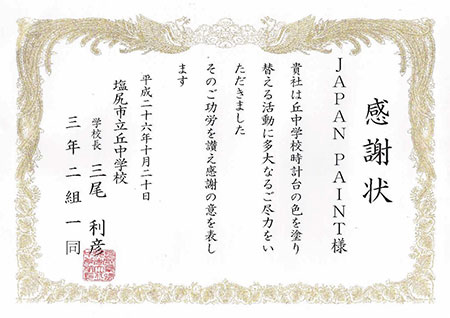 感謝状
JAPAN PAINT様
貴社は丘中学校時計台の色を塗り
替える活動に多大なるご尽力をい
ただきました
そのご功労を讃え感謝の意を表し
ます
平成二十六年十月二十日
塩尻市立丘中学校
学校長 三尾 利彦
三年二組一同